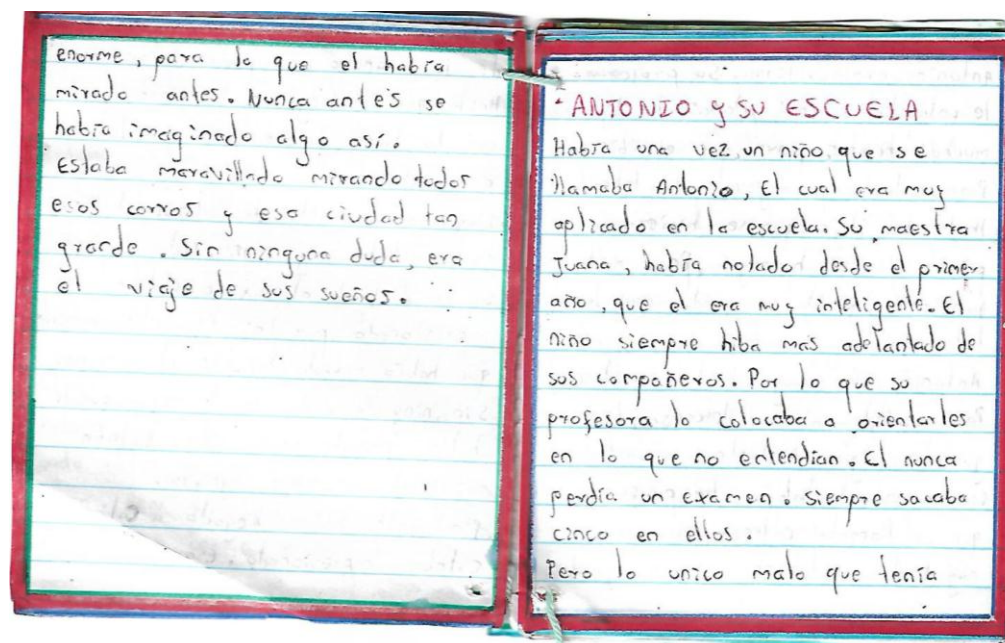 enorme, para lo que el había
mirado antes. Nunca antes se
había imaginado algo así.
Estaba maravillado mirando todos
esos carros y esa ciudad tan
grande. Sin ninguna duda, era
el viaje de sus sueños.
· ANTONIO y SU ESCUELA
Había una vez, un niño que se
llamaba Antonio, El cual era muy
aplicado en la escuela. Su maestra
Juana, había notado desde el primer
año, que el era muy inteligente. El
niño siempre hiba mas adelantado de
sus compañeros. Por lo que su
profesora lo colocaba a orientarles
en lo que no entendian. El nunca
perdía un examen. Siempre sacaba
cinco en ellos.
Pero lo unico malo que tenía